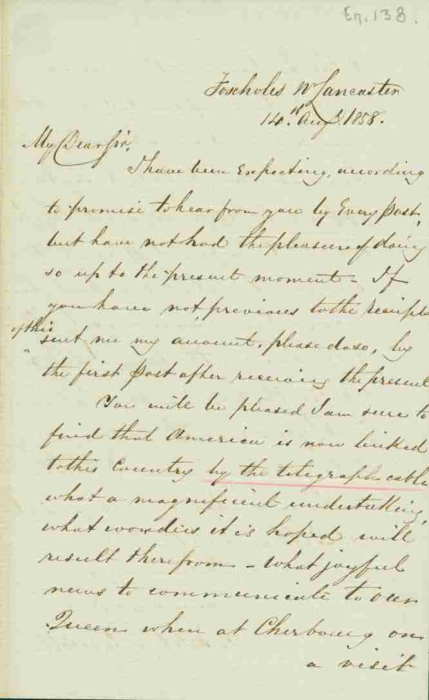 En. 138.
Foxholes Nr Lancaster
14th Augt 1858.
My Dear Sir,
I have been Expecting, according
to promise to hear from you by Every Post,
but have not had the pleasure of doing
so up to the present moment - If
you have not, previous to the receipt
of this
sent me my account, please do so, by
the first Post after receiving the present
You will be pleased I am sure to
find that America is now linked
to this Country by the telegraph cable
what a magnificient undertaking,
what it is hoped will
result therefrom - what joyful
news to communicate to our
Queen when at Cherbourg on
a visit